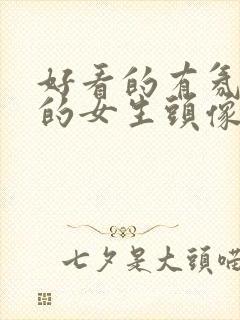 好看的有氛
的女生頭像
七夕是大頭喵